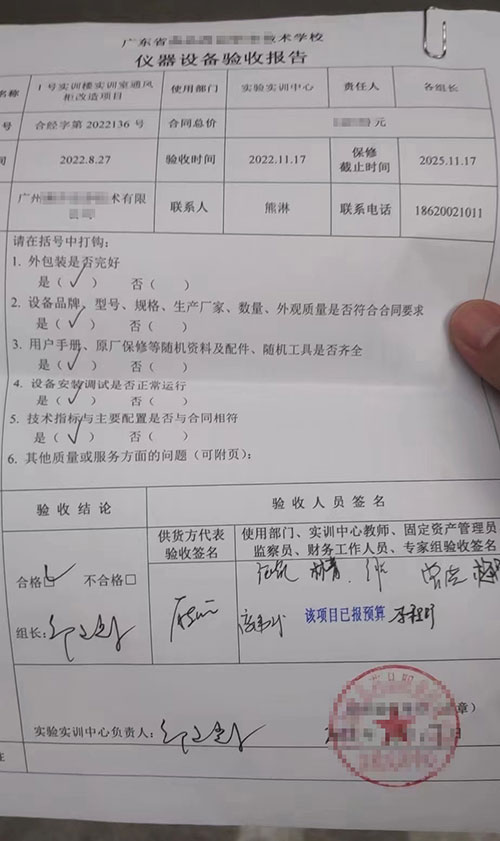 广东省 术学校
仪器设备验收报告
名称 1号实训楼实训室通风柜改造项目 使用部门 实验实训中心 责任人 各组长
号 合经字第2022136号 合同总价 元
间 2022.8.27 验收时间 2022.11.17 保修截止时间 2025.11.17
广州 术有限 联系人 熊淋 联系电话 18620021011
请在括号中打钩：
1. 外包装是否完好
是（✓） 否（ ）
2. 设备品牌、型号、规格、生产厂家、数量、外观质量是否符合合同要求
是（✓） 否（ ）
3. 用户手册、原厂保修等随机资料及配件、随机工具是否齐全
是（✓） 否（ ）
4. 设备安装调试是否正常运行
是（✓） 否（ ）
5. 技术指标与主要配置是否与合同相符
是（✓） 否（ ）
6. 其他质量或服务方面的问题（可附页）：
验收结论 验收人员签名
供货方代表验收签名
使用部门、实训中心教师、固定资产管理员
监察员、财务工作人员、专家组验收签名
合格☑ 不合格□
组长：
该项目已报预算
章）
实验实训中心负责人：
日
注